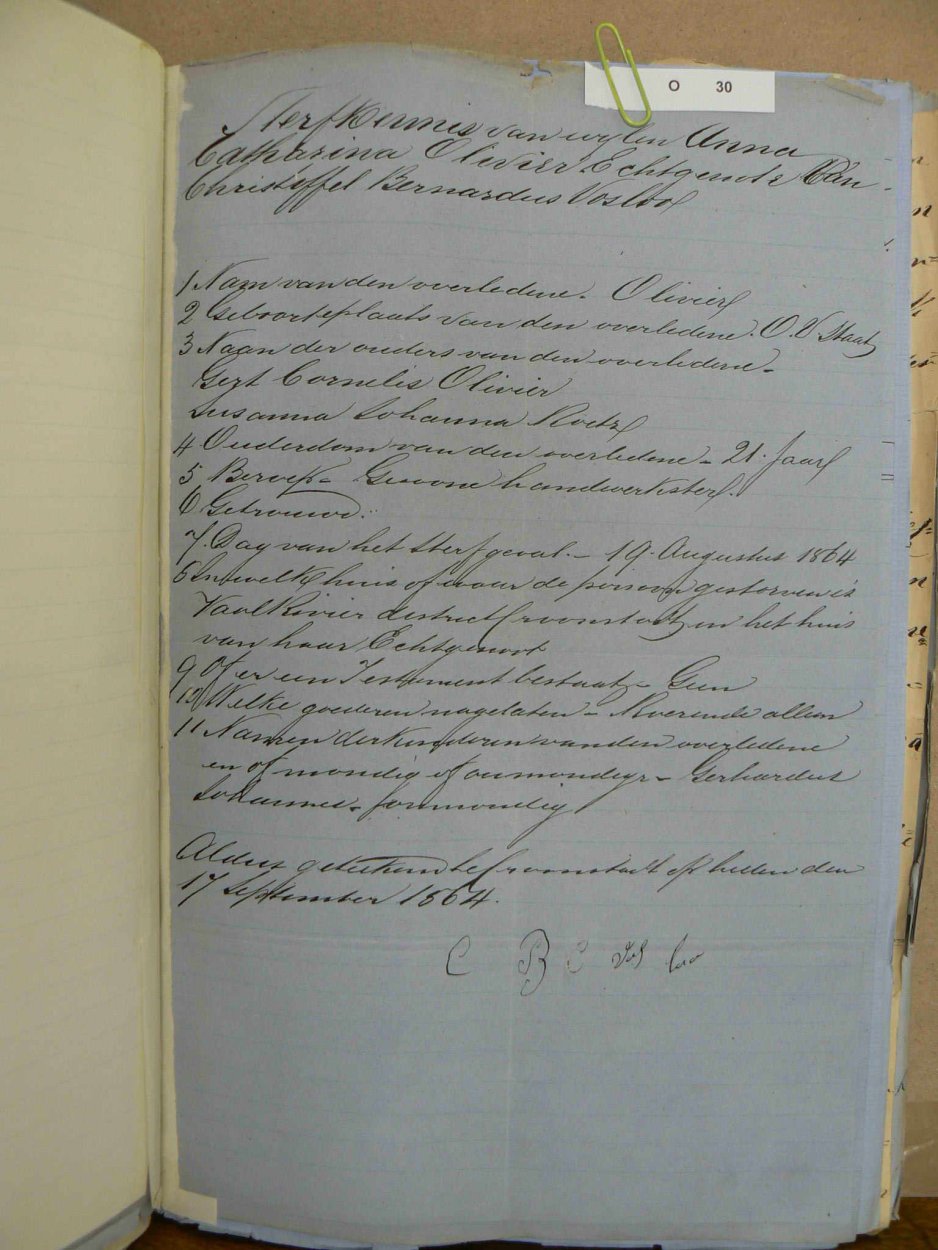 O 30
Sterfkennis van wylen Anna
Catharina Olivier Echtgenote van
Christoffel Bernardus Vosloo
1 Naam van den overledene. Olivier
2 Geboorteplaats van den overledene. O. V. Staat
3 Naam der ouders van den overledene -
Gert Cornelis Olivier
Susanna Johanna
4 Ouderdom van den overledene - 21. Jaar
5 Beroep - Gewone handwerkster.
6 Getrouwd.
7. Dag van het sterfgeval. - 19. Augustus 1864
8 In welk huis of waar de persoon gestorven is
Vaalrivier destrect Croonstadt in het huis
van haar Echtgenoot
9 Of er een Testement bestaat - Geen
10 Welke goederen nagelaten - Roerende alleen
11 Namen der kinderen van den overledene
en of mondig of onmondig - Gerhardus
Johannes -
Aldus getekend te Croonstadt op heden den
17 September 1864.
C B C Vos loo